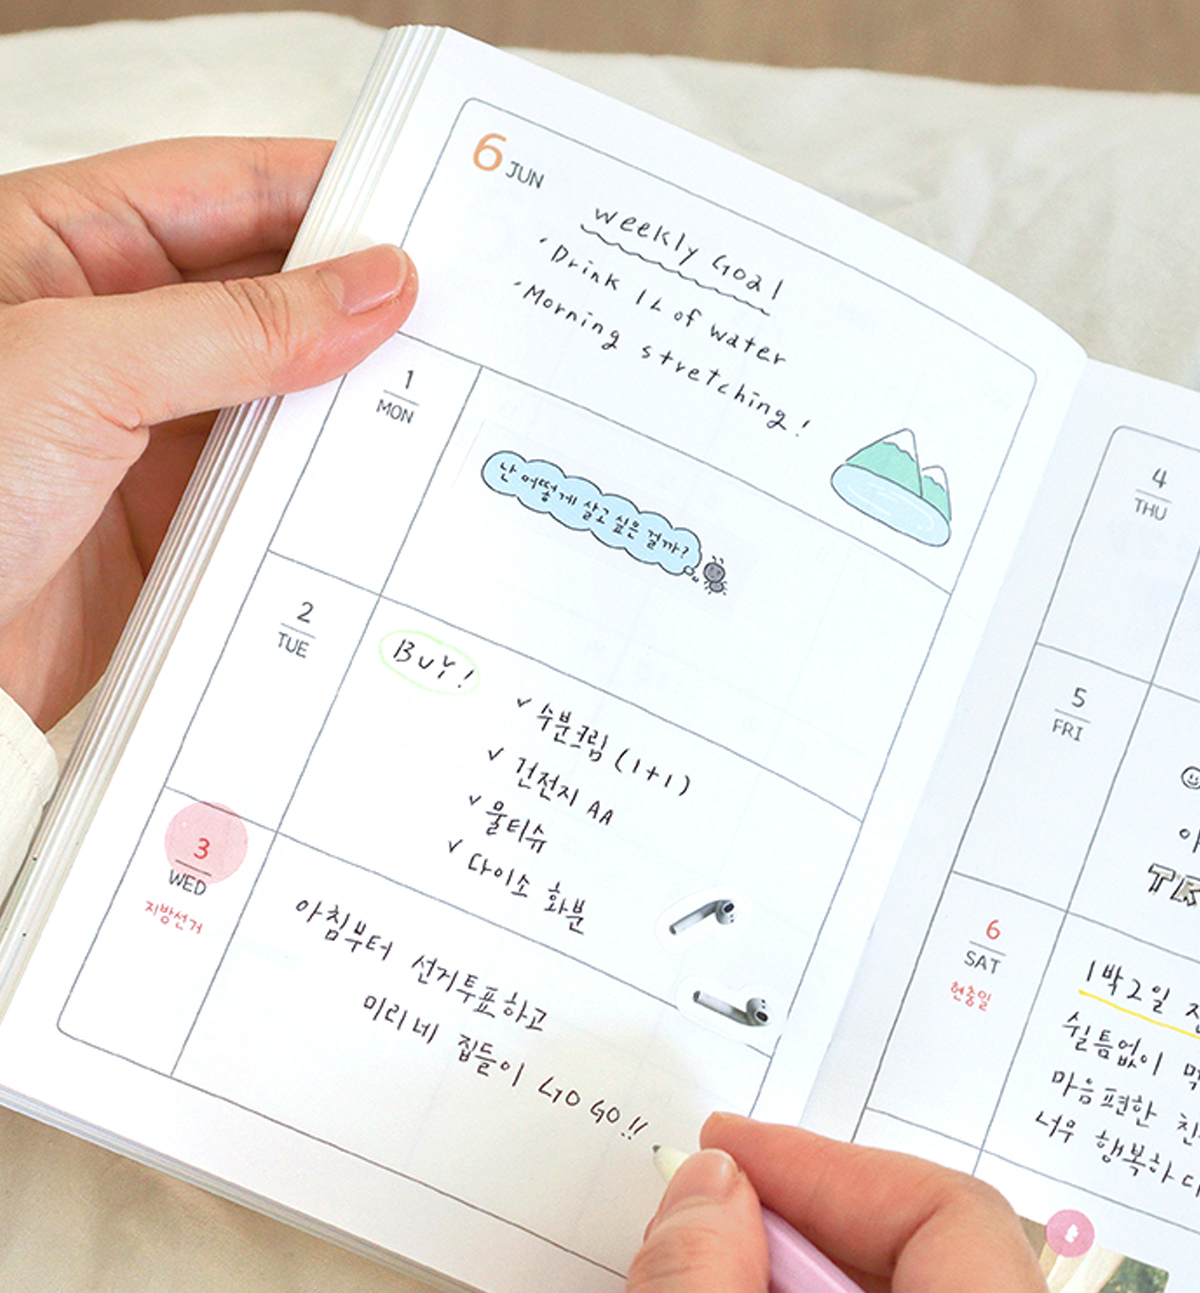 6 JUN
weekly Goal
· Drink 1L of water
· Morning stretching!
1
MON
난 어떻게 살고 싶은 걸까?
2
TUE
BUY!
✓ 수분크림 (1+1)
✓ 건전지 AA
✓ 물티슈
✓ 다이소 화분
3
WED
지방선거
아침부터 선거투표하고
미리네 집들이 GO GO!!
4
THU
5
FRI
☺
6
SAT
현충일
1박2일
쉴틈없이
마음편한
너무 행복하다